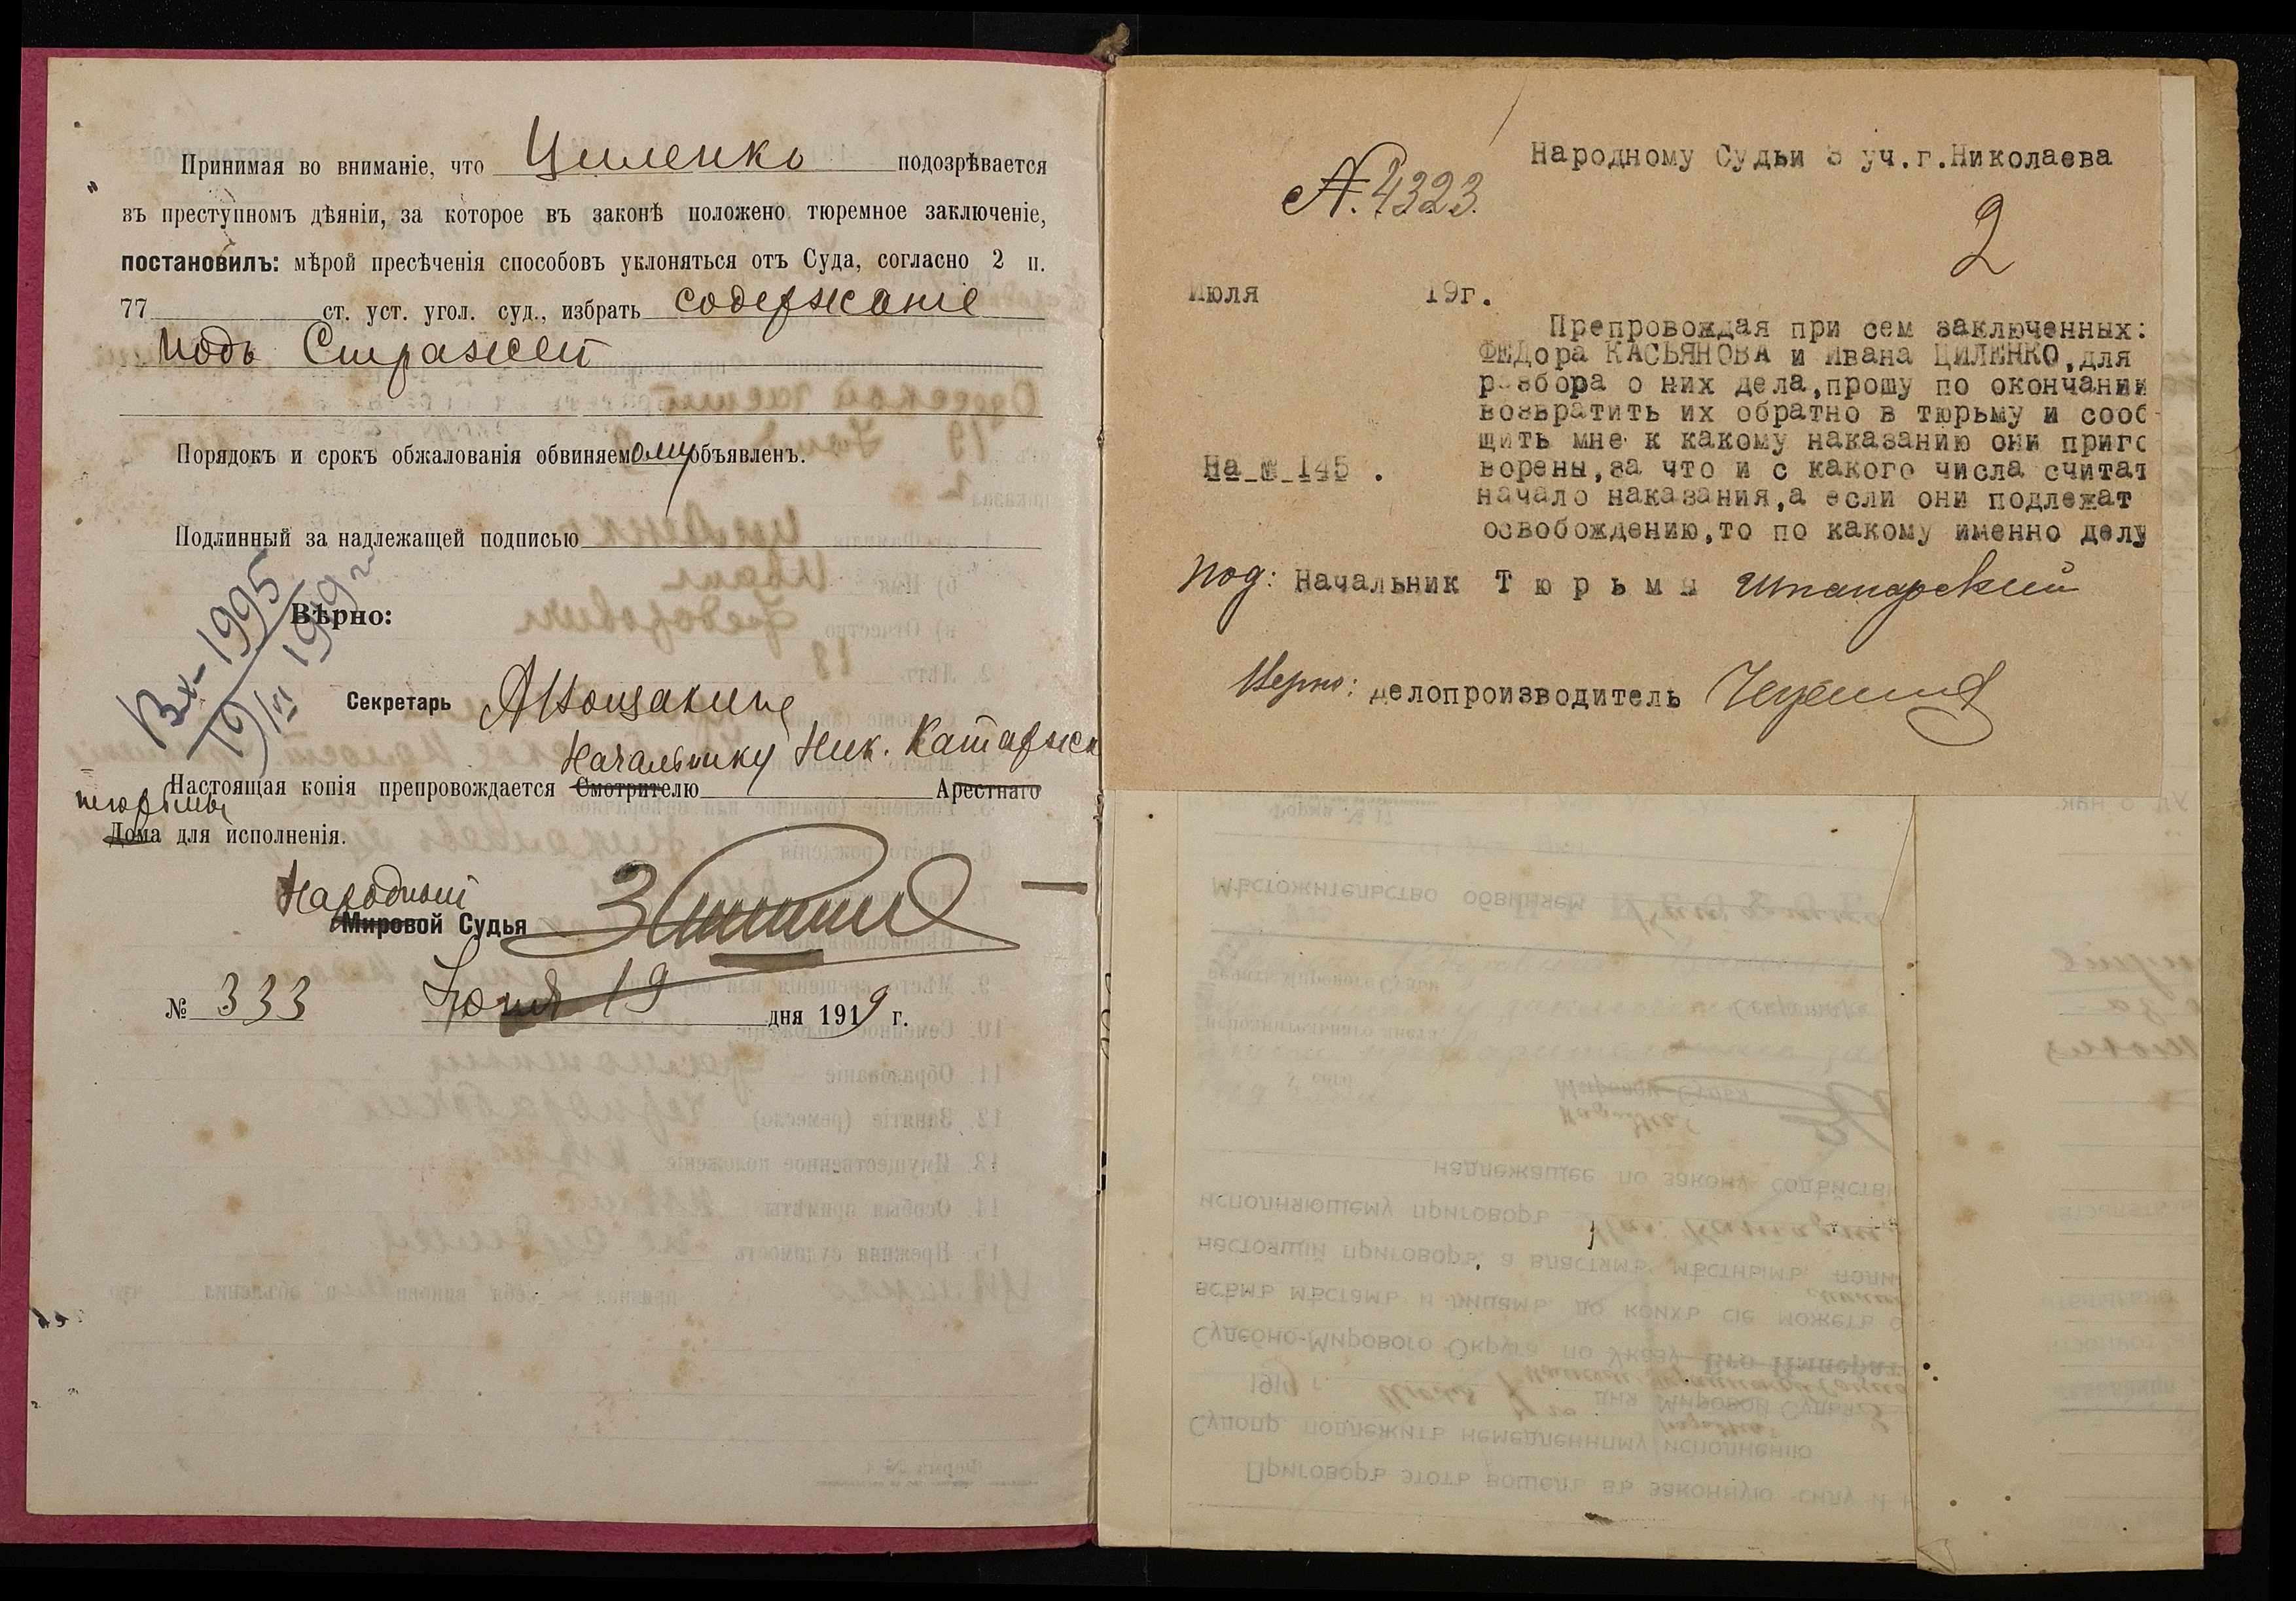 Принимая во вниманіе, что Циленко подозрѣвается
въ преступномъ дѣяніи, за которое въ законѣ положено тюремное заключеніе,
постановилъ: мѣрой пресѣченія способовъ уклоняться отъ Суда, согласно 2 п.
77 ст. уст. угол. суд., избрать содержаніе
подъ Стражей
Порядокъ и срокъ обжалованія обвиняемому объявленъ.
Подлинный за надлежащей подписью
Вх-1995
19/VI 1919 г
Вѣрно:
Секретарь
Начальнику Ник. Каторжн
Настоящая копія препровождается Смотрителю Арестнаго
тюрьмы
Дома для исполненія.
Народный
Мировой Судья
№ 333 Іюня 19 дня 1919 г.
Народному Судьи 3 уч.г.Николаева
№. 4323.
2
Июля 19г.
Препровождая при сем заключенных:
ФЕДора КАСЬЯНОВА и Ивана ЦИЛЕНКО,для
разбора о них дела,прошу по окончании
возвратить их обратно в тюрьму и сооб-
щить мне к какому наказанию они приго
На № 145 .
ворены,за что и с какого числа считат
начало наказания,а если они подлежат
освобождению,то по какому именно делу
под: Начальник Тюрьмы
Верно: делопроизводитель